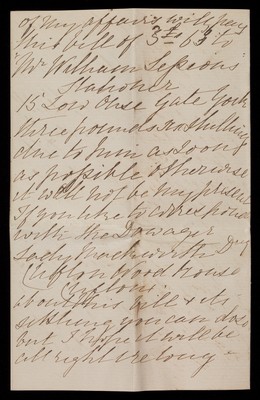 of my affairs will pay
this bill of 3£ 6s to
Mr William Sessions
Stationer
15 Low Ouse Gate York
three pounds six shillings
due to him as soon
as possible otherwise
it will not be my present
If you like to correspond
with the Dowager
Lady Mackworth
Clifton Wood House
Clifton
about this bill & its
settling you can do so
but I hope it will be
all right ere long -